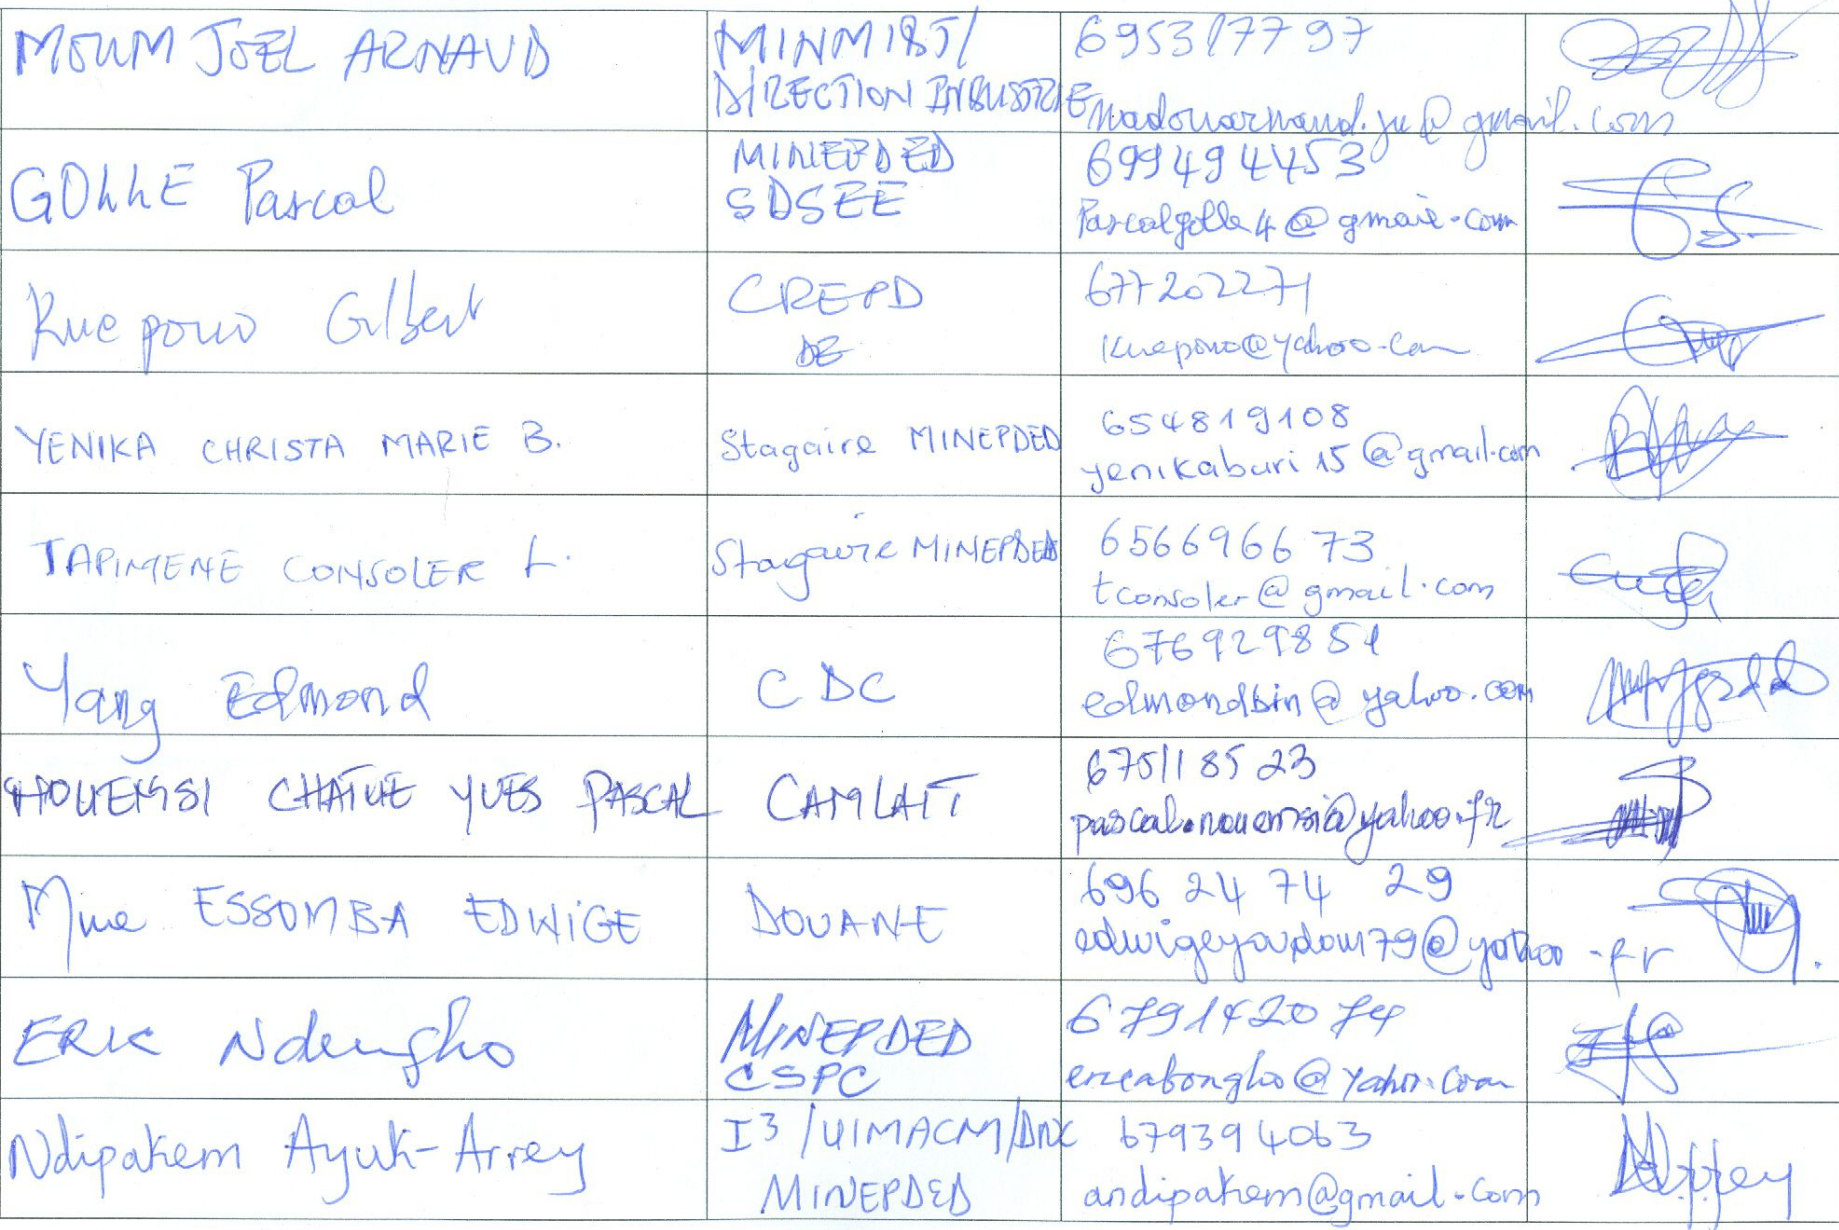 MOUM JOEL ARNAUD
MINMIDT/
DIRECTION INDUSTRIE
695317797
madouarnaud.ju@gmail.com
GOLLE Pascal
MINEPDED
SDSEE
699494453
Pascalgolle4@gmail.com
Kuepouo Gilbert
CREPD
677202271
kuepouo@yahoo.com
YENIKA CHRISTA MARIE B.
Stagaire MINEPDED
654819108
yenikaburi15@gmail.com
TAPIMENE CONSOLER L.
Stagaire MINEPDED
656696673
tconsoler@gmail.com
Yang Edmond
CDC
676929851
edmondbin@yahoo.com
NOUEMSI CHATUE YVES PASCAL
CAMLAIT
675118523
pascal.nouemsi@yahoo.fr
Mme ESSOMBA EDWIGE
DOUANE
696 24 74 29
edwigeyoudom79@yahoo.fr
ERIC Ndengho
MINEPDED
CSPC
679142074
@yahoo.com
Ndipakem Ayuk-Arrey
I3/UIMACM/DNC
MINEPDED
679394063
andipakem@gmail.com